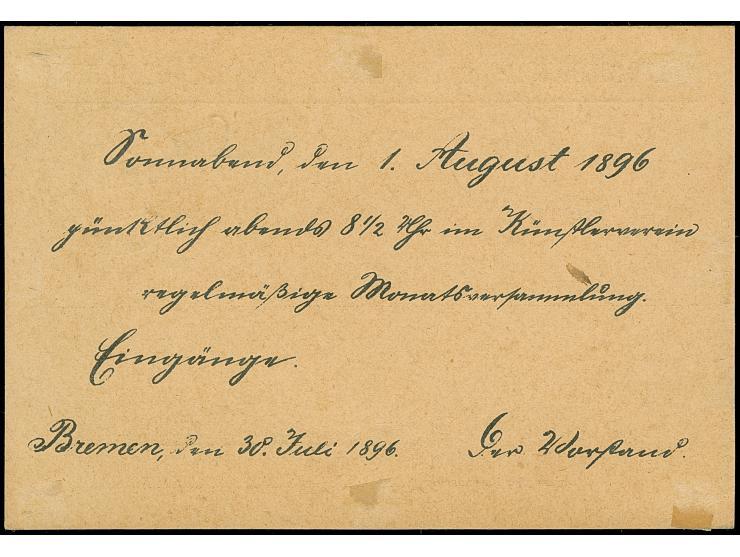 Sonnabend, den 1. August 1896
pünktlich abends 8 1/2 Uhr im Künstlerverein
regelmäßige Monatsversammlung.
Eingänge.
Bremen, den 30. Juli 1896. Der Vorstand.